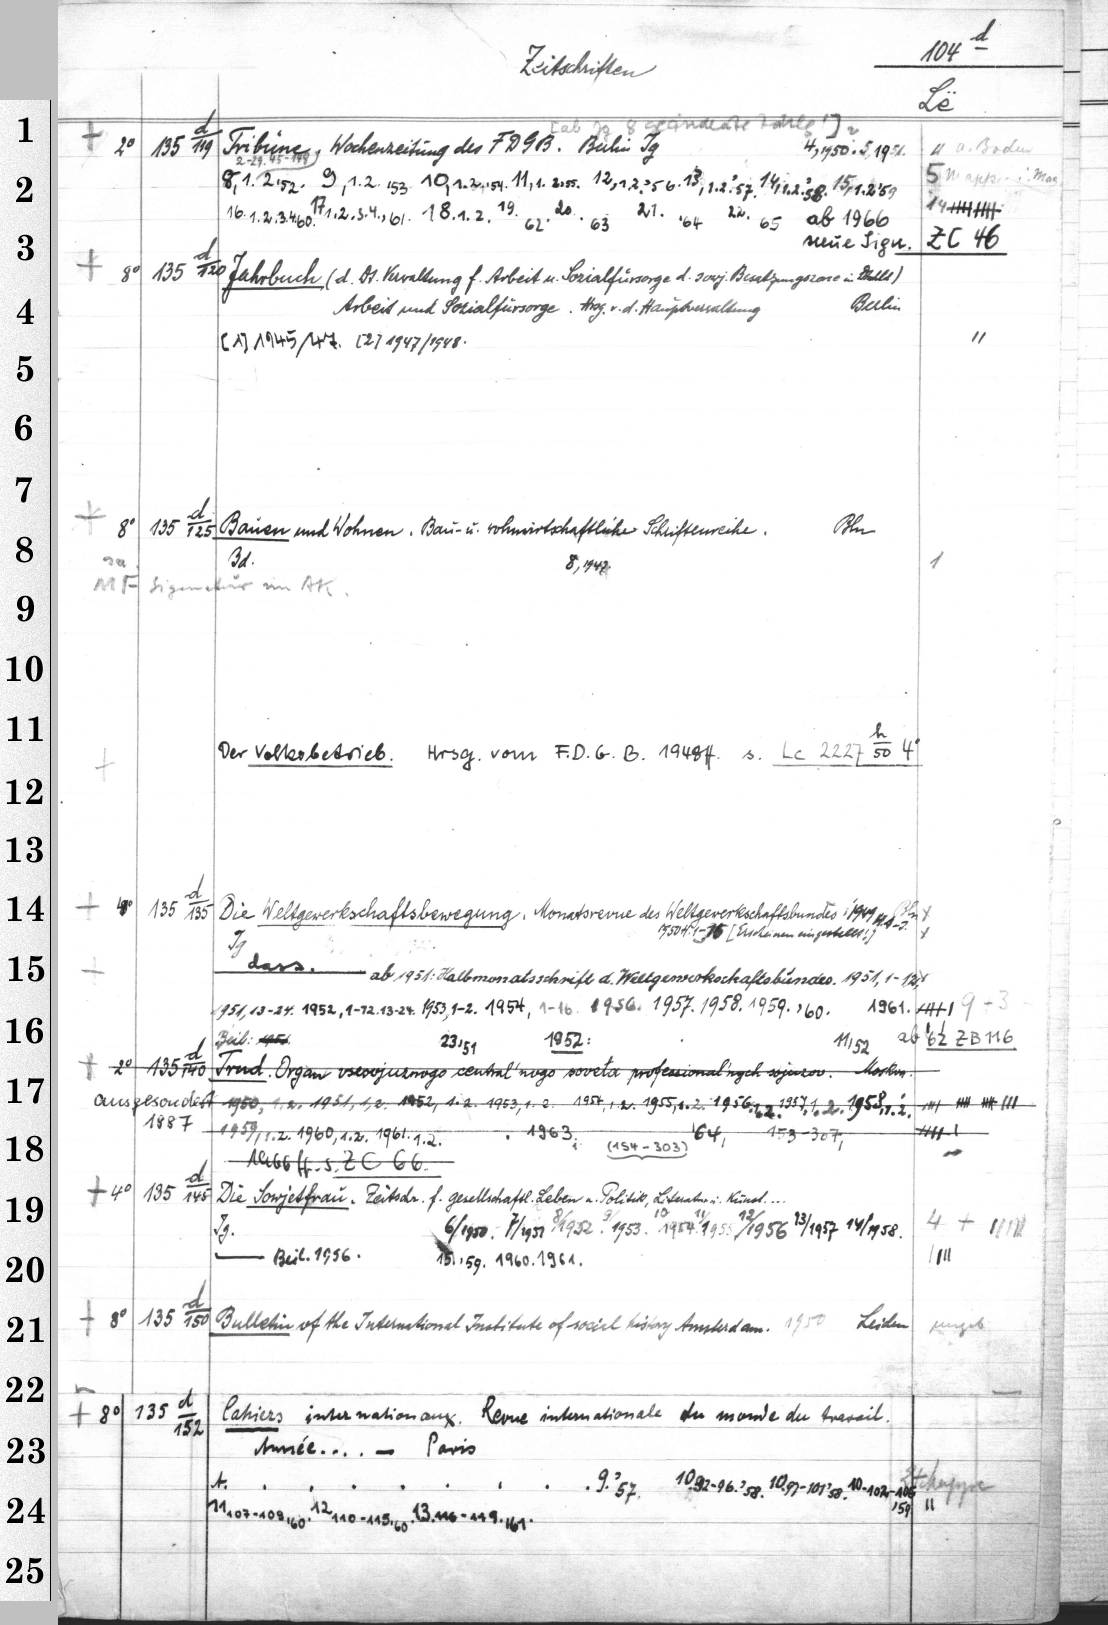 104 d
Zeitschriften
Lë
1
+ 2° 135 d/119 Tribüne, Wochenzeitung des FDGB. Berlin Jg 4,1950. 5,1951. " a. Boden
2-29.45-148
2
8,1.2.'52. 9,1.2.'53 10,1.2.'54. 11,1.2.'55. 12,1.2.'56. 13,1.2.'57. 14,1.2.'58. 15,1.2.'59 5
16.1.2.3.4.60. 17 1.2.3.4.,61. 18.1.2. 19. 62. 20. 63 21. '64 22. 65 ab 1966
3
neue Sign. ZC 46
+ 8° 135 d/120 Jahrbuch (d. Dt. Verwaltung f. Arbeit u. Sozialfürsorge d. sowj. Besatzungszone in Dtschl.)
4
Arbeit und Sozialfürsorge. Hrsg. v. d. Hauptverwaltung Berlin
[1] 1945/47. [2] 1947/1948. "
5
6
7
+ 8° 135 d/125 Bauen und Wohnen. Bau- u. wohnwirtschaftliche Schriftenreihe. Bln
8
Bd. 8,1947. 1
MF Signatur im AK.
9
10
11
+ Der Volksbetrieb. Hrsg. vom F.D.G.B. 1948ff. s. Lc 2227 h/50 4°
12
13
14
+ 4° 135 d/135 Die Weltgewerkschaftsbewegung. Monatsrevue des Weltgewerkschaftsbundes 1949 Bln
[Erscheinen eingestellt!]
Jg
15
dass. ab 1951: Halbmonatsschrift d. Weltgewerkschaftsbundes. 1951, 1-12
1951,13-24. 1952,1-12.13-24. 1953,1-2. 1954, 1-16. 1956. 1957. 1958. 1959. '60. 1961.
16
Beil: 23,51 1952: 11,52 ab '62 ZB 116
+ 2° 135 d/140 Trud. Organ vsesojuznogo central'nogo soveta professional'nych sojuzov. Moskva.
17
ausgesondert 1950, 1.2. 1951, 1.2. 1952, 1.2. 1953, 1.2. 1954, 1.2. 1955, 1.2. 1956, 1.2. 1957, 1.2. 1958, 1.2.
1887
18
1959, 1.2. 1960, 1.2. 1961. 1.2. 1963, '64, 153-307,
(154-303)
1966 ff. s. ZC 66.
+ 4° 135 d/145 Die Sowjetfrau. Zeitschr. f. gesellschaftl. Leben u. Politik, Literatur u. Kunst....
19
Jg. 6/1950. 7/1951 8/1952 9/1953. 10 1954. 11/1955 12/1956 13/1957 14/1958. 4 +
20
Beil. 1956. 15,59. 1960. 1961.
21
+ 8° 135 d/150 Bulletin of the International Institute of social history Amsterdam. 1950 Leiden
22
+ 8° 135 d/152 Cahiers internationaux. Revue internationale du monde du travail.
23
Année.... — Paris
A. 9.'57. 10,92-96.'58. 10,97-101'58. 10-102-106 ,59
24
11 107-109,60. 12 110-115,60. 13.116-119.,61. "
25